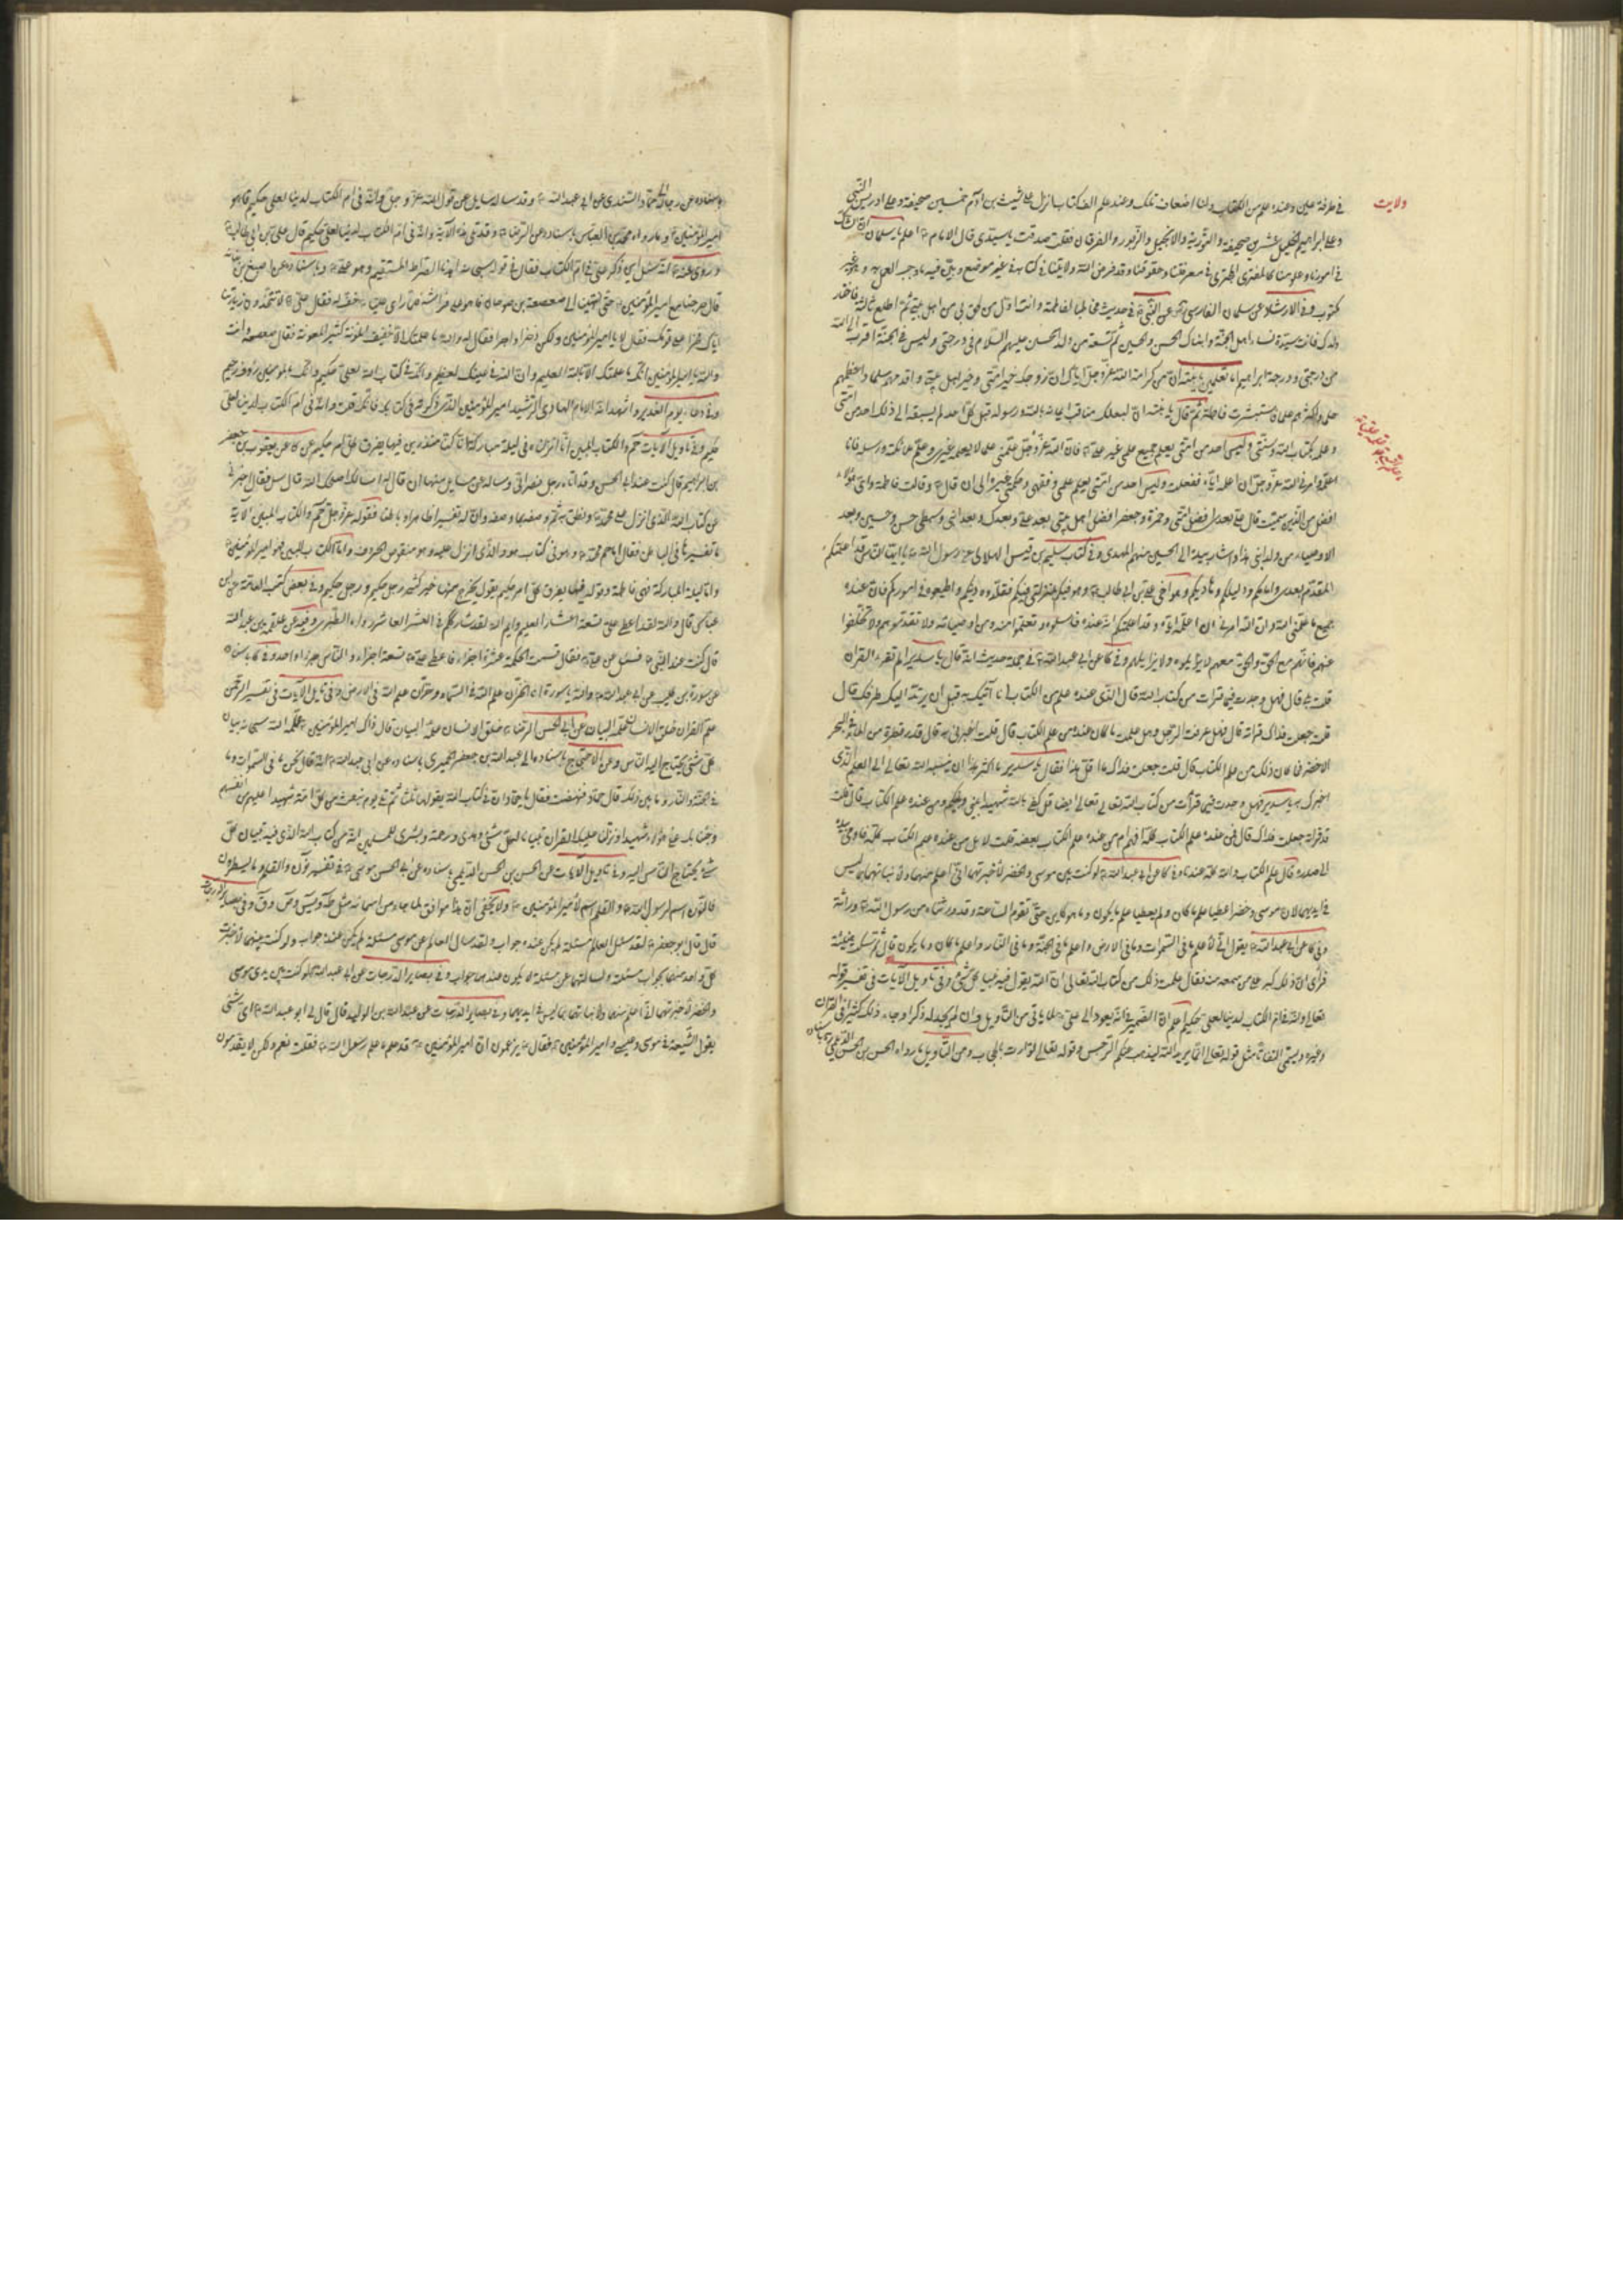 ولايت
في طرفة عين وعنده علم من الكتاب ولنا اضعاف ذلك وعنده علم الف كتاب انزل على شيث بن آدم خمسين صحيفة وعلى ادريس النبي
وعلى ابراهيم الخليل عشرين صحيفة والتورية والانجيل والزبور والفرقان فقلت صدقت يا سيدي قال الامام اعلم يا سلمان ان الشاك
في امورنا وعلومنا كالممتري في معرفتنا وحقوقنا وقد فرض الله ولايتنا في كتابه في غير موضع وبين فيه ما وجب العمل به وهو غير
مكتوب وفي الارشاد عن سلمان الفارسي عن النبي في حديث مخاطبا لفاطمة وانت اول من لحق بي من اهل بيتي ثم اطلع ثالثة فاختارك
وولدك فانت سيدة نساء اهل الجنة وابناك الحسن والحسين ثم تسعة من ولد الحسين عليهم السلام في درجتي وليس في الجنة اقرب الى الله
من درجتي ودرجة ابراهيم اما تعلمين يا بنية ان من كرامة الله عز وجل اياك ان زوجك خير امتي وخير اهل بيتي واقدمهم سلما واعظمهم
حلما واكثرهم علما فاستبشرت فاطمة ثم قال يا بنية ان لبعلك مناقب ايمانه بالله ورسوله قبل كل احد لم يسبقه الى ذلك احد من امتي
وعلمه بكتاب الله وسنتي وليس احد من امتي يعلم جميع علمي غير علي فان الله عز وجل علمني علما لا يعلمه غيري وعلم ملائكته ورسله فانا
اعلمه وامرني الله عز وجل ان اعلمه اياه ففعلت وليس احد من امتي يعلم علمي وفقهي وحكمتي غيره الى ان قال وقالت فاطمة واي هؤلاء
افضل من الذين سميت قال علي بعدي افضل امتي وحمزة وجعفر افضل اهل بيتي بعد علي وبعدك وبعد ابني وسبطي حسن وحسين وبعد
الاوصياء من ولد ابني هذا واشار بيده الى الحسين منهم المهدي وفي كتاب سليم بن قيس الهلالي رسول الله يا ايها الناس قد اعلمتكم
المقدم بعدي وامامكم ودليلكم وهاديكم وهو اخي علي بن ابي طالب وهو فيكم بمنزلتي فيكم فقلدوه دينكم واطيعوه في اموركم فان عنده
جميع ما علمني الله وان الله امرني ان اعلمه اياه وقد اعلمتكم انه عنده فاسئلوه وتعلموا منه ومن اوصيائه ولا تقدموهم ولا تخلفوا
عنهم فانهم مع الحق والحق معهم لا يزايلوه ولا يزايلهم وفي كا عن ابي عبد الله في جملة حديث انه قال يا سدير الم تقرء القران
قلت بلى قال فهل وجدت فيما قرات من كتاب الله قال الذي عنده علم من الكتاب انا آتيك به قبل ان يرتد اليك طرفك قال
قلت جعلت فداك قراته قال فهل عرفت الرجل وهل علمت ما كان عنده من علم الكتاب قال قلت اخبرني به قال قدر قطرة من الماء في البحر
الاخضر فما كان ذلك من علم الكتاب قال قلت جعلت فداك ما اقل هذا فقال يا سدير ما اكثر هذا ان ينسبه الله تعالى الى العلم الذي
اخبرك به يا سدير فهل وجدت فيما قرأت من كتاب الله تعالى ايضا قل كفى بالله شهيدا بيني وبينكم ومن عنده علم الكتاب قال قلت
قد قراته جعلت فداك قال فمن عنده علم الكتاب كله افهم ام من عنده علم الكتاب بعضه قلت لا بل من عنده علم الكتاب كله فاومى بيده
الى صدره قال علم الكتاب والله كله عندنا وفي كا عن ابي عبد الله لو كنت بين موسى والخضر لاخبرتهما اني اعلم منهما ولانبأتهما بما ليس
في ايديهما لان موسى وخضر اعطيا علم ما كان ولم يعطيا علم ما يكون وما هو كاين حتى تقوم الساعة وقد ورثناه من رسول الله وراثة
وفي كا عن ابي عبد الله يقول اني لاعلم ما في السموات وما في الارض واعلم ما في الجنة وما في النار واعلم ما كان وما يكون قال ثم سكت هنيئة
فرأى ان ذلك كبر على من سمعه منه فقال علمت ذلك من كتاب الله تعالى ان الله يقول فيه تبيان كل شيء وفي تاويل الآيات في تفسير قوله
تعالى وانه في ام الكتاب لدينا لعلي حكيم اعلم ان الضمير في انه يعود الى علي لما ياتي من التأويل وان لم يجد له ذكرا وجاء ذلك كثيرا في القران
وغيره ويسمى التفاتا مثل قوله تعالى انما يريد الله ليذهب عنكم الرجس وقوله تعالى توارت بالحجاب ومن التأويل ما رواه الحسن بن الحسن الديلمي
باسناده عن رجاله الى حماد السندي عن ابي عبد الله وقد ساله سايل عن قول الله عز وجل وانه في ام الكتاب لدينا لعلي حكيم قال هو
امير المؤمنين وما رواه محمد بن العباس باسناده عن الرضا وقد تلى هذه الآية وانه في ام الكتاب لدينا لعلي حكيم قال علي بن ابي طالب
وروى عنه انه سئل اين ذكر علي في ام الكتاب فقال في قوله سبحانه اهدنا الصراط المستقيم وهو علي وباسناده عن اصبغ بن نباتة
قال خرجنا مع امير المؤمنين حتى انتهينا الى صعصعة بن صوحان فاذا هو على فراشه فلما راى عليا خف له فقال علي لا تتخذن زيارتنا
اياك فخرا على قومك فقال لا يا امير المؤمنين ولكن ذخرا واجرا فقال له والله ما علمتك الا خفيف المؤنة كثير المعونة فقال صعصعة وانت
والله يا امير المؤمنين انك ما علمتك الا بالله لعليم وان الله في عينك لعظيم وانك في كتاب الله لعلي حكيم وانك بالمؤمنين رؤف رحيم
وفي دعاء يوم الغدير واشهد انه الامام الهادي الرشيد امير المؤمنين الذي ذكرته في كتابك فانك قلت وانه في ام الكتاب لدينا لعلي
حكيم وفي تاويل الآيات حم والكتاب المبين انا انزلناه في ليلة مباركة انا كنا منذرين فيها يفرق كل امر حكيم عن كا عن يعقوب بن جعفر
بن ابراهيم قال كنت عند ابي الحسن وقد اتاه رجل نصراني وساله عن مسايل منها ان قال له اسالك اصلحك الله قال سل فقال اخبرني
عن كتاب الله الذي انزل على محمد ونطق به ثم وصفه بما وصفه وان له تفسيرا ظاهرا وباطنا فقوله عز وجل حم والكتاب المبين الآية
ما تفسيرها في الباطن فقال اما حم محمد وهو في كتاب هود الذي انزل عليه وهو منقوص الحروف واما الكتاب المبين فهو امير المؤمنين
واما ليلة المباركة فهي فاطمة وقوله فيها يفرق كل امر حكيم يقول يخرج منها خير كثير رجل حكيم ورجل حكيم وفي بعض كتب العامة عن ابن
عباس قال والله لقد اعطي علي تسعة اعشار العلم وايم الله لقد شارككم في العشر العاشر رواه الطبري وفيه عن علقمة بن عبد الله
قال كنت عند النبي فسئل عن علي فقال قسمت الحكمة عشرة اجزاء فاعطي علي تسعة اجزاء والناس جزء واحد وفي كا باسناده
عن سورة بن كليب عن ابي عبد الله والله يا سورة انا لخزان علم الله في السماء وخزان علم الله في الارض وفي تاويل الآيات في تفسير الرحمن
علم القران خلق الانسان علمه البيان عن ابي الحسن الرضا خلق الانسان علمه البيان قال ذاك امير المؤمنين علمه الله سبحانه بيان
كل شيء يحتاج اليه الناس وعن الاحتجاج باسناده الى عبد الله بن جعفر الحميري باسناده عن ابي عبد الله انه قال نحن ما في السموات وما
في الجنة والنار وما بين ذلك قال حماد فنهضت فقال يا حماد ان في كتاب الله يقولها ثلثا ثم تلى يوم نبعث من كل امة شهيدا عليهم من انفسهم
وجئنا بك على هؤلاء شهيدا ونزلنا عليك القران تبيانا لكل شيء وهدى ورحمة وبشرى للمسلمين انه من كتاب الله الذي فيه تبيان كل
شيء يحتاج الناس اليه وفي تاويل الآيات عن الحسن بن الحسن الديلمي باسناده عن ابي الحسن موسى في تفسير نون والقلم وما يسطرون
فالنون اسم لرسول الله والقلم اسم لامير المؤمنين ولا يخفى ان هذا موافق لما جاء من اسمائه مثل طه ويس وص وق وفي بصاير الدرجات
قال قال ابو جعفر لقد سئل العالم مسئلة لم يكن عنده جواب ولقد سال العالم عن موسى مسئلة لم يكن عنده جواب ولو كنت بينهما لاخبرت
كل واحد منهما بجواب مسئلته ولسالتهما عن مسئلة لا يكون عندهما جواب وفي بصاير الدرجات عن ابي عبد الله لو كنت بين يدي موسى
والخضر لاخبرتهما اني اعلم منهما ولانبأتهما بما ليس في ايديهما وفي بصاير الدرجات عن عبد الله بن الوليد قال قال لي ابو عبد الله اي شيء
يقول الشيعة في موسى وعيسى وامير المؤمنين فقال يزعمون ان امير المؤمنين قد علم ما علم رسول الله فقلت نعم ولكن لا يقدمون